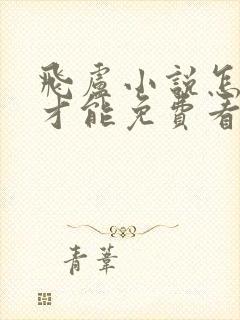 飛盧小説怎
才能免費看
青葦